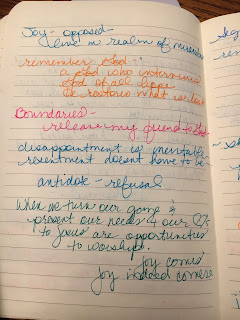 Joy - opposed -
live in realm of
remember God -
a God who
God of all hope
& restores what is
Boundaries -
release my friend to
disappointment is inevitable
resentment doesnt have to be
antidote - refusal
When we turn our gaze &
present our needs & our ?s
to Jesus are opportunities
to worship.
Joy comes
Joy indeed comes